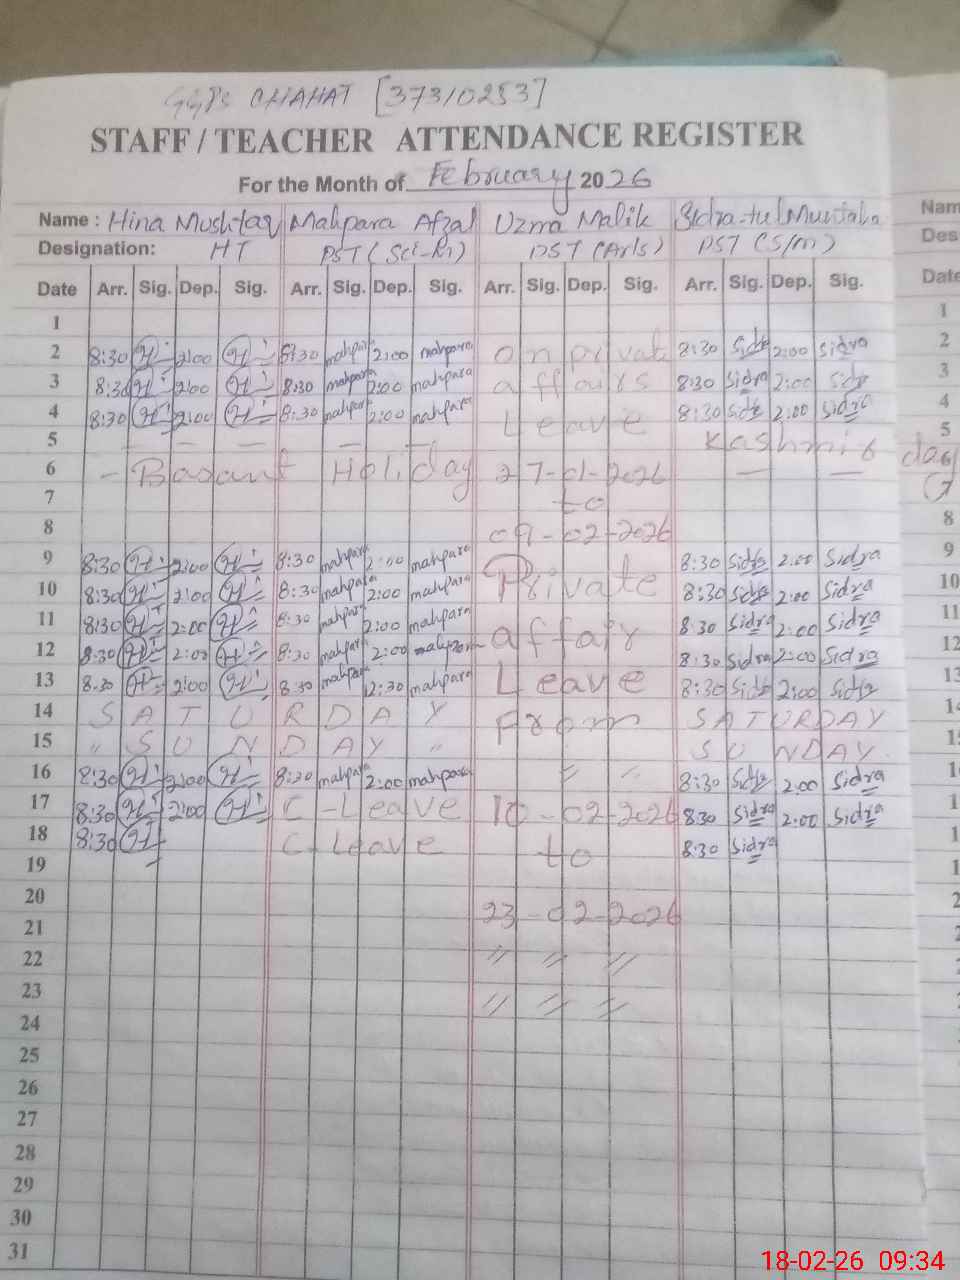 GGPS CHAHAT [37310253]
STAFF / TEACHER ATTENDANCE REGISTER
For the Month of February 2026
Name : Hina Mushtaq Mahpara Afzal Uzma Malik Sidra-tul Muntaha
Designation: HT PST (Sci-) PST (Arts) PST (S/m)
Date Arr. Sig. Dep. Sig. Arr. Sig. Dep. Sig. Arr. Sig. Dep. Sig. Arr. Sig. Dep. Sig.
1
2 8:30 H 2:00 H 8:30 mahpara 2:00 mahpara on private 8:30 Sidra 2:00 Sidra
3 8:30 H 2:00 H 8:30 mahpara 2:00 mahpara affairs 8:30 Sidra 2:00 Sidra
4 8:30 H 2:00 H 8:30 mahpara 2:00 mahpara Leave 8:30 Sidra 2:00 Sidra
5 — — — — — — Kashmir day
6 – Basant Holiday 27-01-2026 — —
7 to
8 09-02-2026
9 8:30 H 2:00 H 8:30 mahpara 2:00 mahpara Private 8:30 Sidra 2:00 Sidra
10 8:30 H 2:00 H 8:30 mahpara 2:00 mahpara 8:30 Sidra 2:00 Sidra
11 8:30 H 2:00 H 8:30 mahpara 2:00 mahpara affair 8:30 Sidra 2:00 Sidra
12 8:30 H 2:00 H 8:30 mahpara 2:00 mahpara 8:30 Sidra 2:00 Sidra
13 8:30 H 2:00 H 8:30 mahpara 12:30 mahpara Leave 8:30 Sidra 2:00 Sidra
14 SATURDAY From SATURDAY
15 " SUNDAY " SUNDAY
16 8:30 H 2:00 H 8:30 mahpara 2:00 mahpara " " 8:30 Sidra 2:00 Sidra
17 8:30 H 2:00 H C-Leave 10-02-2026 8:30 Sidra 2:00 Sidra
18 8:30 H C-Leave to 8:30 Sidra
19
20 23-02-2026
21
22 " " "
23 " " "
24
25
26
27
28
29
30
31
Nam
Des
Date
1
2
3
4
5
6
7
8
9
10
11
12
13
18-02-26 09:34